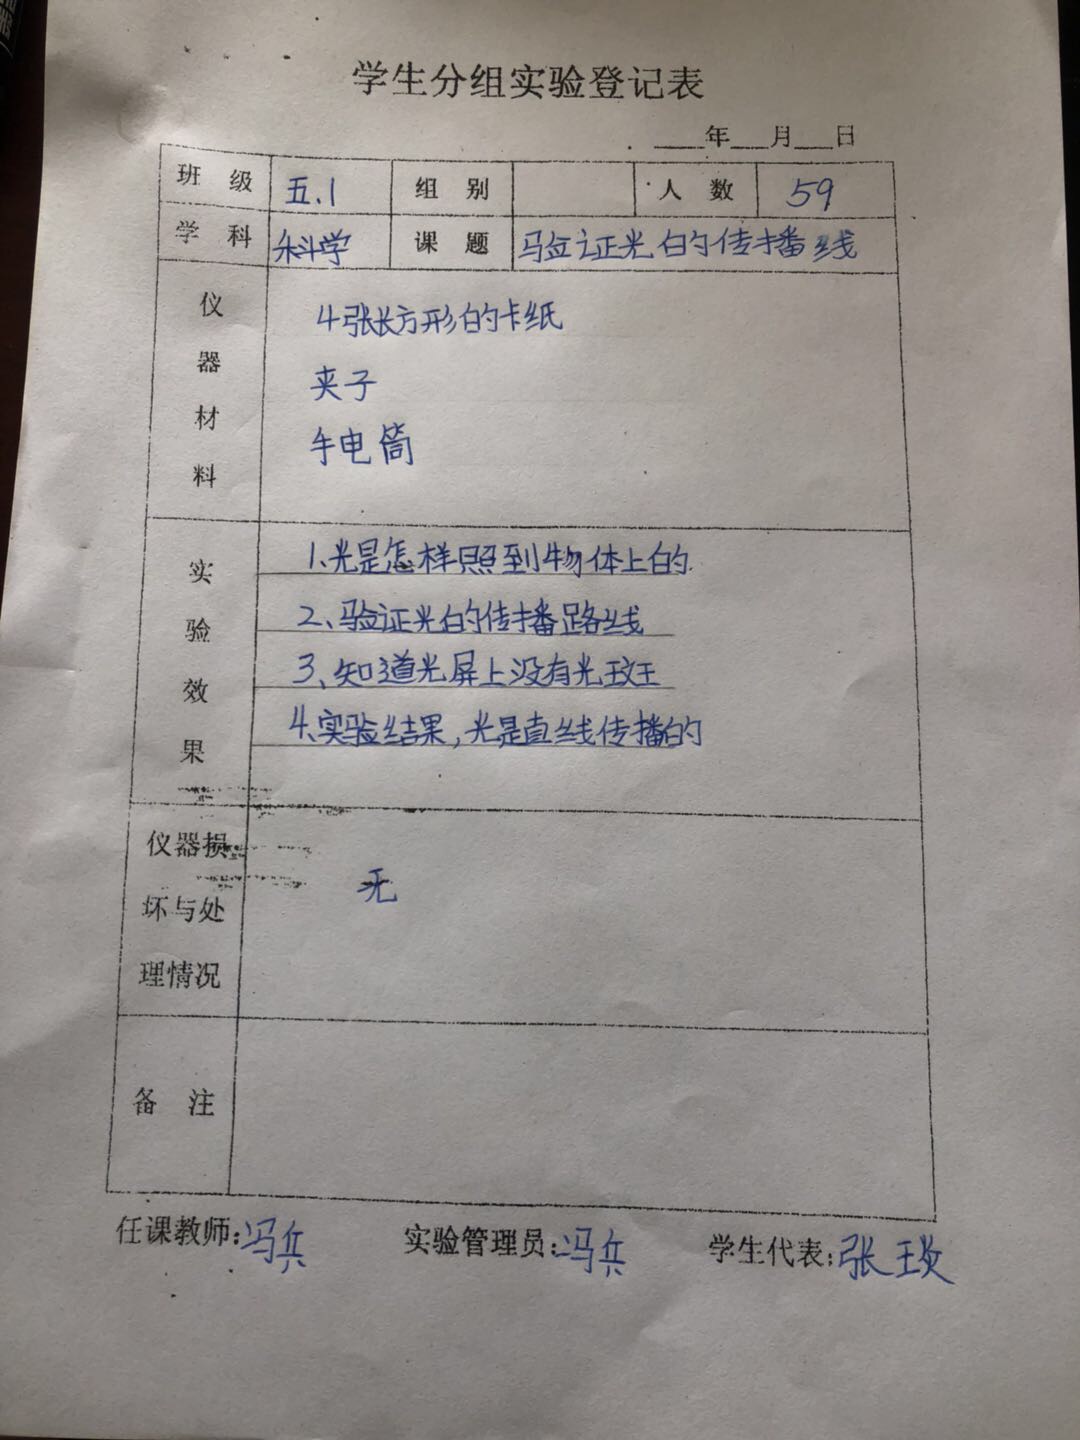 学生分组实验登记表
年 月 日
班级 五.1 组别 人数 59
学科 科学 课题 验证光的传播线
仪器材料
4张长方形的卡纸
夹子
手电筒
实验效果
1、光是怎样照到物体上的.
2、验证光的传播路线
3、知道光屏上没有光
4.实验结果,光是直线传播的
仪器损坏与处理情况
无
备注
任课教师:冯兵 实验管理员:冯兵 学生代表:张